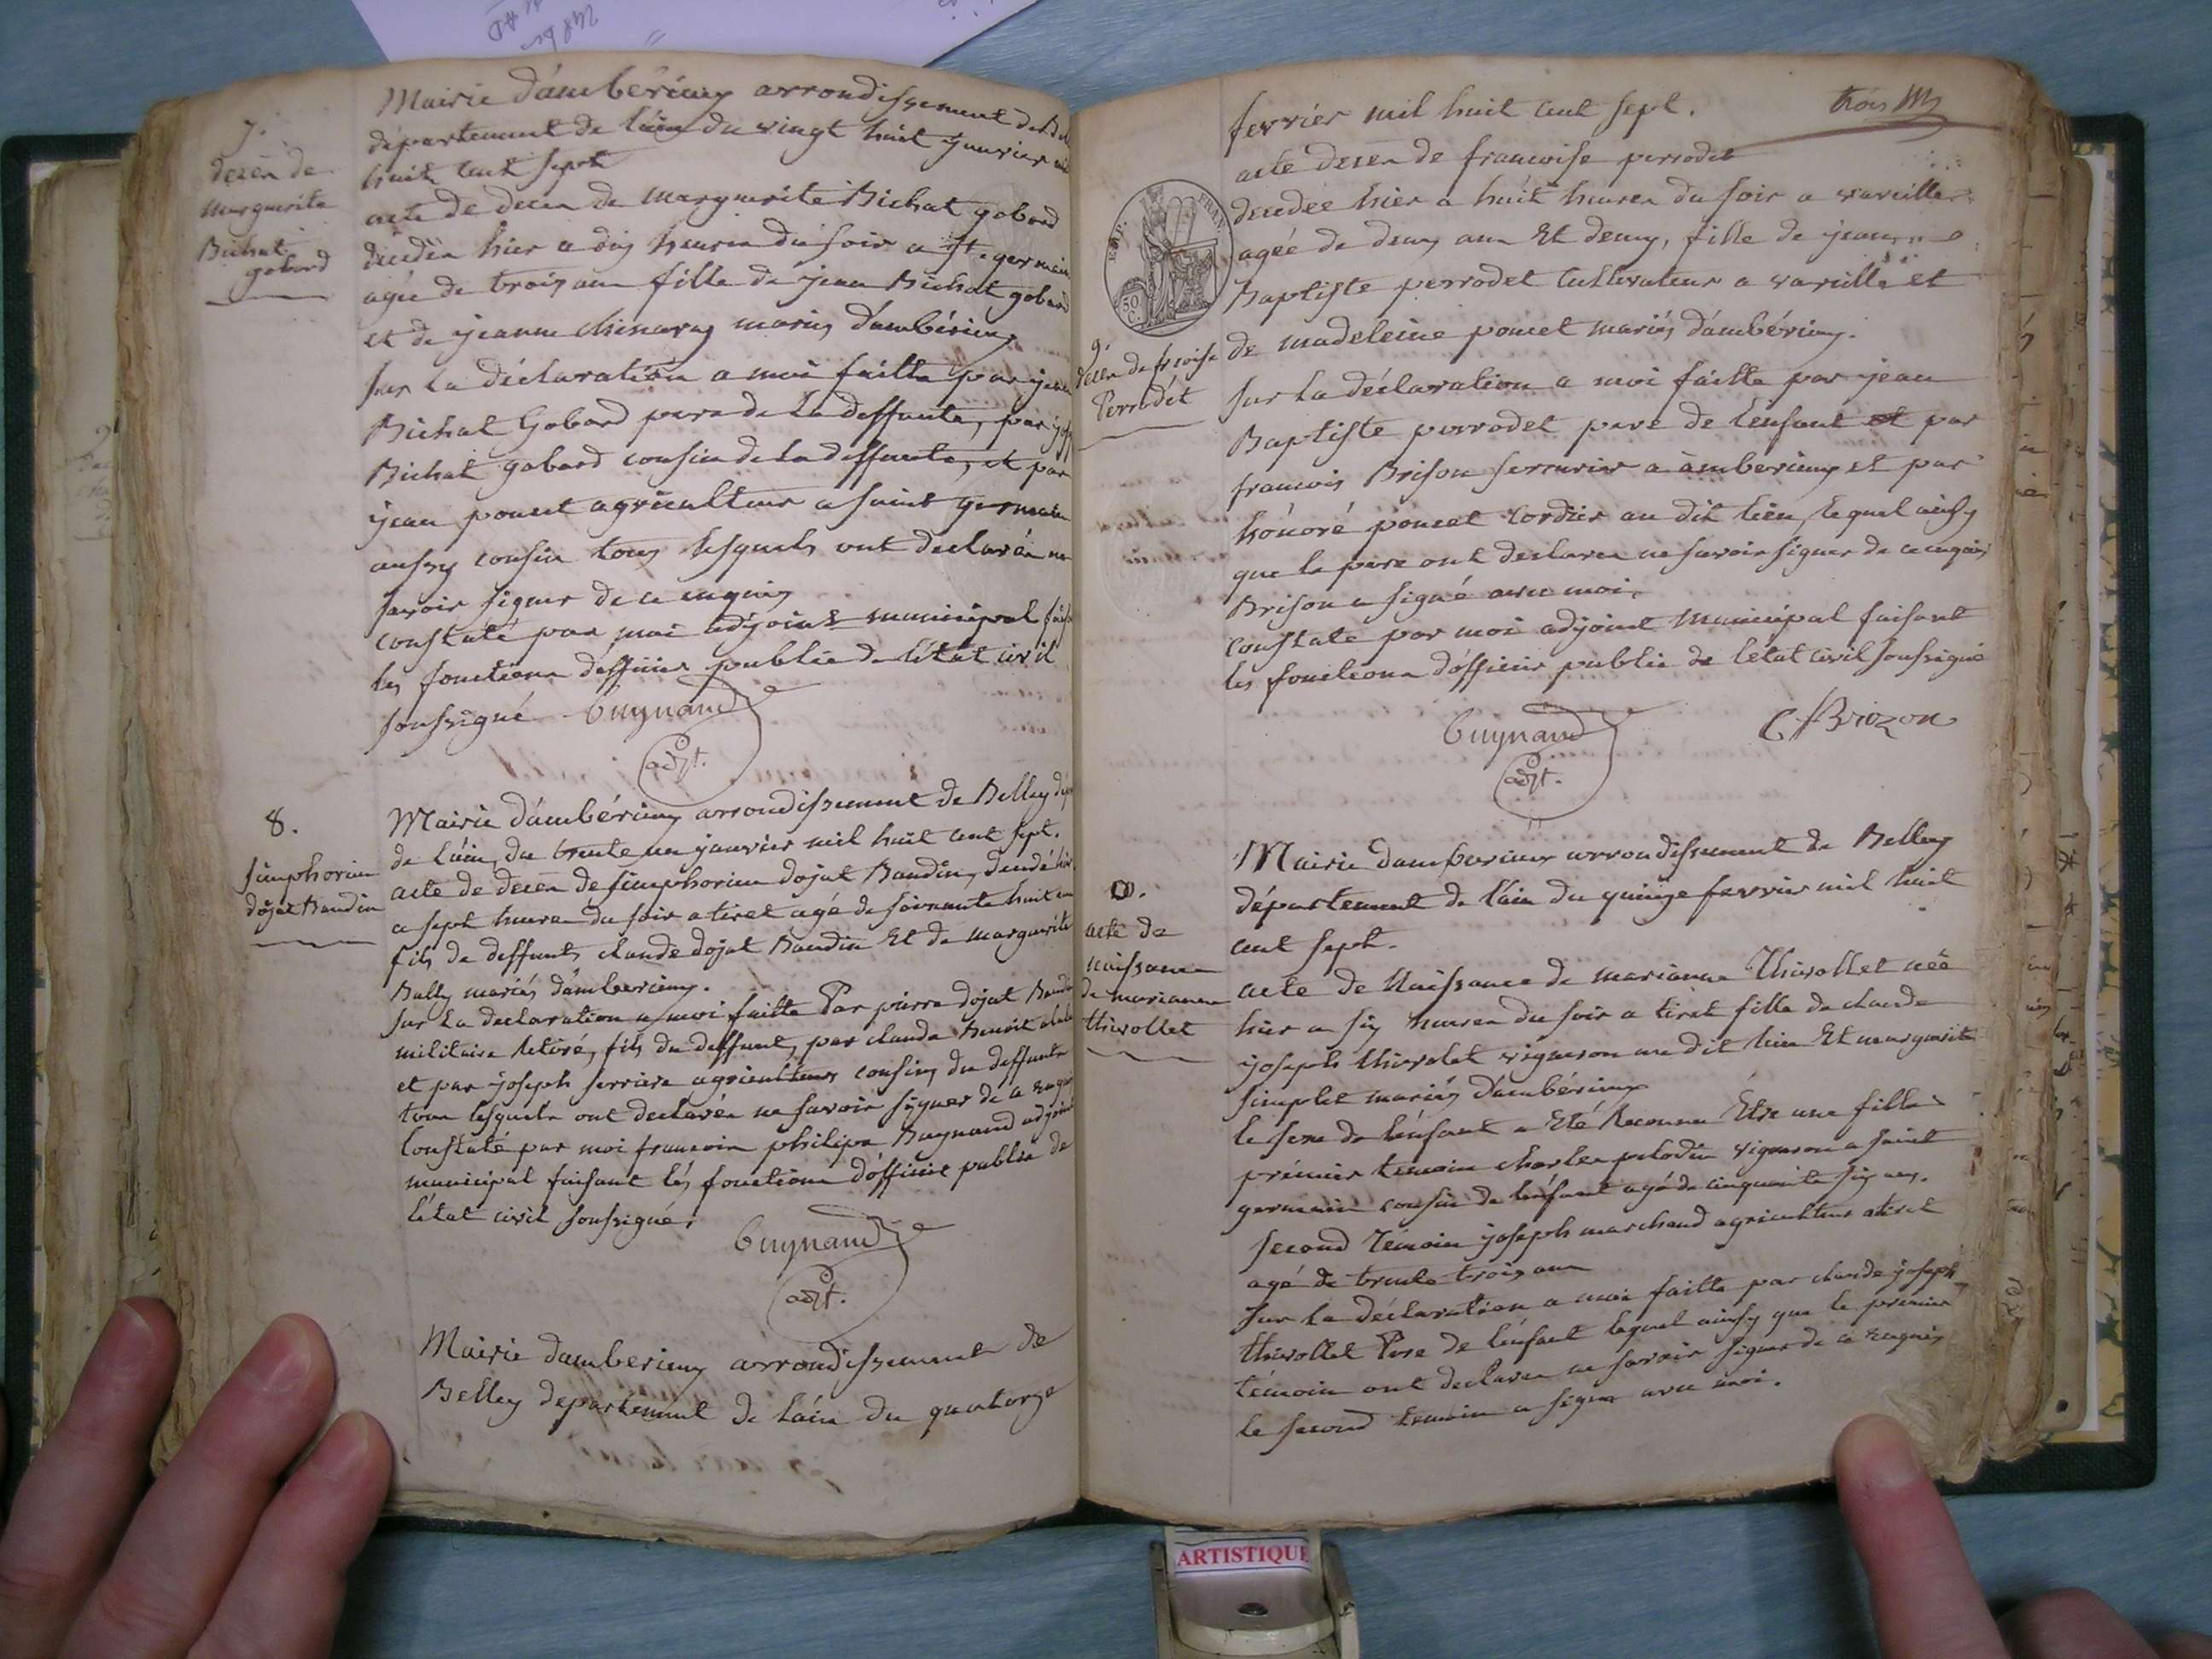 7.
decèn de
marguerite
Bichat
gobard
Mairie d'ambérieux arrondissement de Bel
département de l'ain du vingt huit janvier mil
huit cent sept
acte de decen de marguerite Bichat gobard
décédén hier a dix heuren du soir a st. germain
agée de trois ans fille de jean Bichat gobard
et de jeanne chinavas mariés d'ambérieux
sur la déclaration a moi faitte par jean
Bichat Gobard pere de la deffunte, par
Bichat gobard cousin de la deffunte, et par
jean poncet agriculteur a saint germain
aussy cousin tous lesquels ont declarén ne
savoir signer de ce enquis
constaté par moi adjoint municipal fais
les fonctions d'officier public de l'état civil
soussigné Buynand
adjt.
8.
simphorien
dojat Baudin
Mairie d'ambérieux arrondissement de Belley dép
de l'ain, du trente un janvier mil huit cent sept.
acte de decen de simphorien dojat Baudin, décédé hier
a sept heuren du soir a tiret agé de soixante huit an
fils de deffunts claude dojat Baudin Et de marguerite
Bully mariés d'amberieux.
sur la declaration a moi faitte Par pierre dojat Baudin
militaire Retiré, fils du deffunt, par claude Benoit
et par joseph ferriere agriculteurs cousins du deffunt
tous lesquels ont declarén ne savoir signer de ce enquis
Constaté par moi francois philipe Buynand adjoint
municipal faisant les fonctions d'officier public de
l'état civil soussigné.
Buynand
adjt.
Mairie d'amberieux arrondissement de
Belley departement de l'ain du quatorze
fevrier mil huit cent sept.
trois
EMP. FRAN.
50 C.
9.
decen de fscoise
Perrodét
acte decen de francoise perrodet
decedée hier a huit heuren du soir a vareilles
agée de deux ans Et demy, fille de jean
Baptiste perrodet Cultivateur a vareille et
de madeleine poncet mariés d'ambérieux.
sur la déclaration a moi faitte par jean
Baptiste perrodet pere de l'enfant et par
francois Brison serrurier a amberieux et par
honoré poncet cordier au dit lieu, lequel ainsy
que le pere ont declaren ne savoir signer de ce enquis
Brison a signé avec moi.
constaté par moi adjoint Municipal faisant
les fonctions d'officier public de l'état civil soussigné
Buynand
adjt.
C fBrizon
10.
acte de
naissance
de marianne
thivollet
Mairie d'amberieux arrondissement de Belley
département de l'ain du quinze fevrier mil huit
cent sept.
acte de Naissance de marianne Thivollet née
hier a six heuren du soir a tiret fille de claude
joseph thivolet vigneron au dit lieu Et marguerite
simplet mariés d'ambérieux
le sexe de l'énfant a Eté Reconnu Etre une fille
prémier témoin charles pelodin vigneron a saint
germain cousin de l'enfant agé de cinquante six ans.
second Témoin joseph marchand agriculteur a tiret
agé de trente trois ans
Sur la déclaration a moi faitte par claude joseph
thivollet Pere de l'énfant lequel ainsy que le premier
témoin ont declaren ne savoir signer de ce enquis
le second temoin a signé avec moi.
ARTISTIQUE